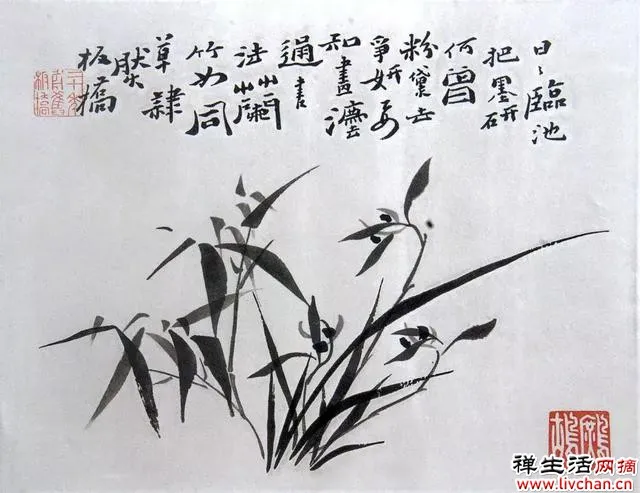 日〻臨池
把墨研
何曾
粉黛去
爭妍要
知畫灋
通書
法蘭
竹如同
草隸
然
板橋
禅生活网摘
www.livchan.cn